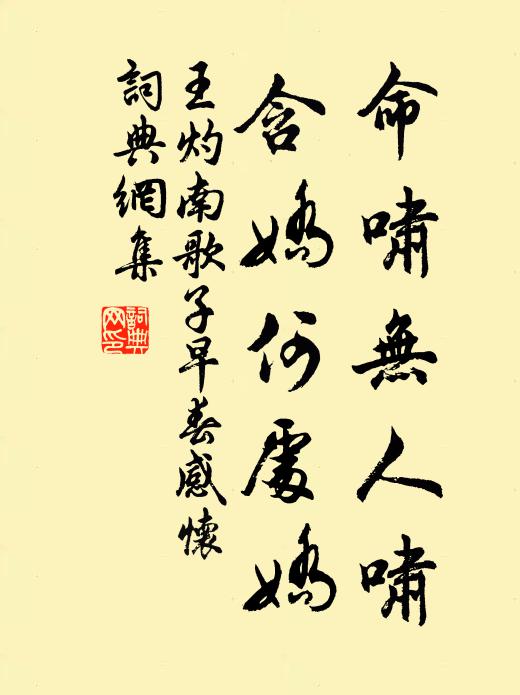 命嘯無人嘯
含嬌何處嬌
王灼南歌子早春感懷
詞典網集
詞典網印